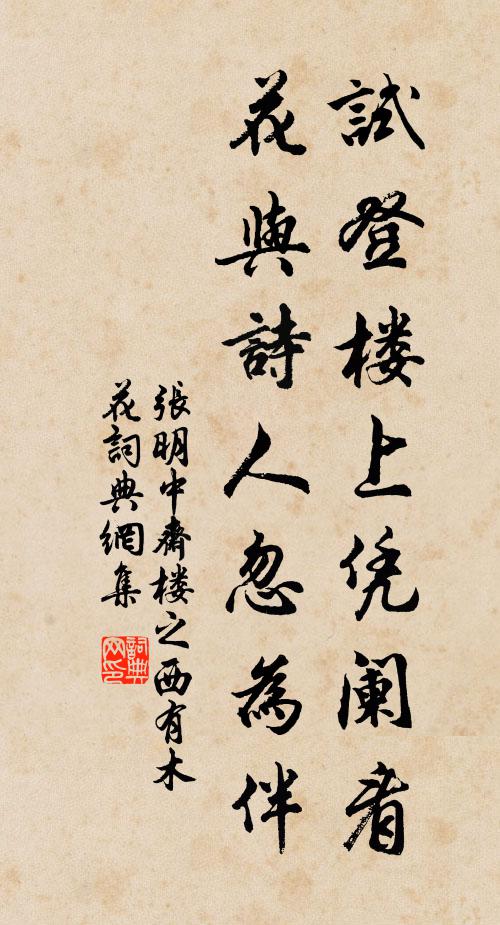 試登楼上凭阑看
花與詩人忽為伴
張明中齋楼之西有木
花詞典網集
詞典网印